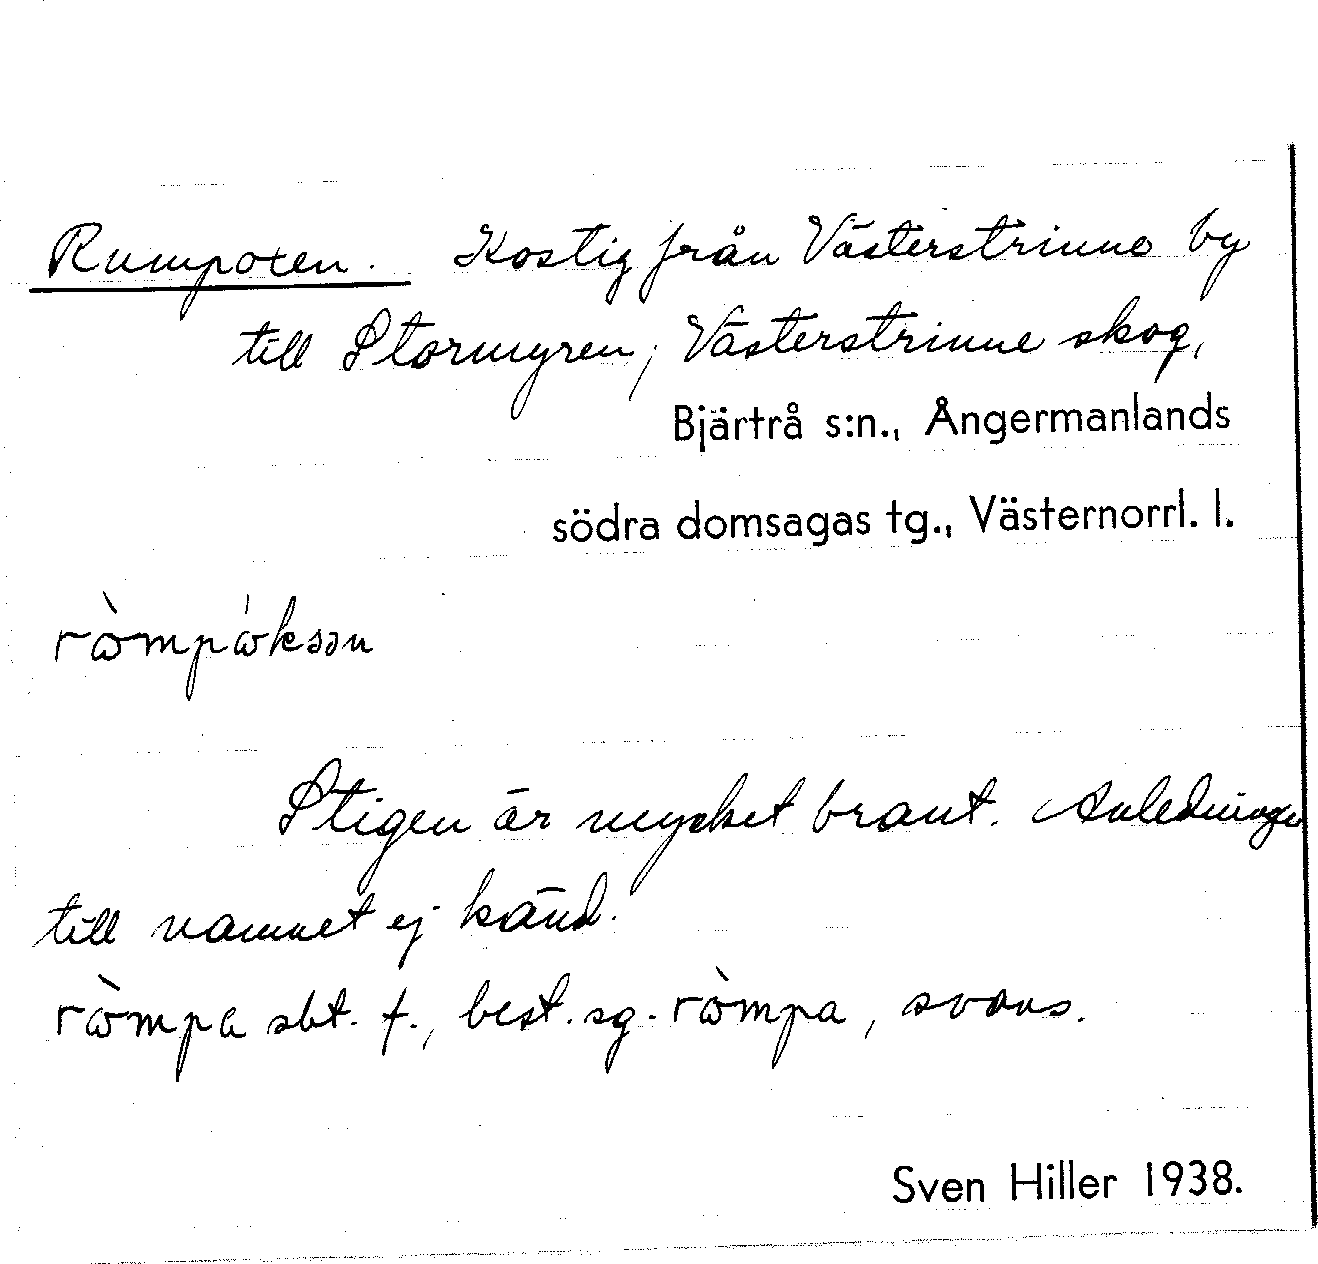 Rumpoxen. Kostig från Västerstrinne by
till Stormyren, Västerstrinne skog,
Bjärtrå s:n., Ångermanlands
södra domsagas tg., Västernorrl. l.
ròmpóksən
Stigen är mycket brant. Anledningen
till namnet ej känd.
ròmpa sbt. f., best. sg. ròmpa, svans.
Sven Hiller 1938.